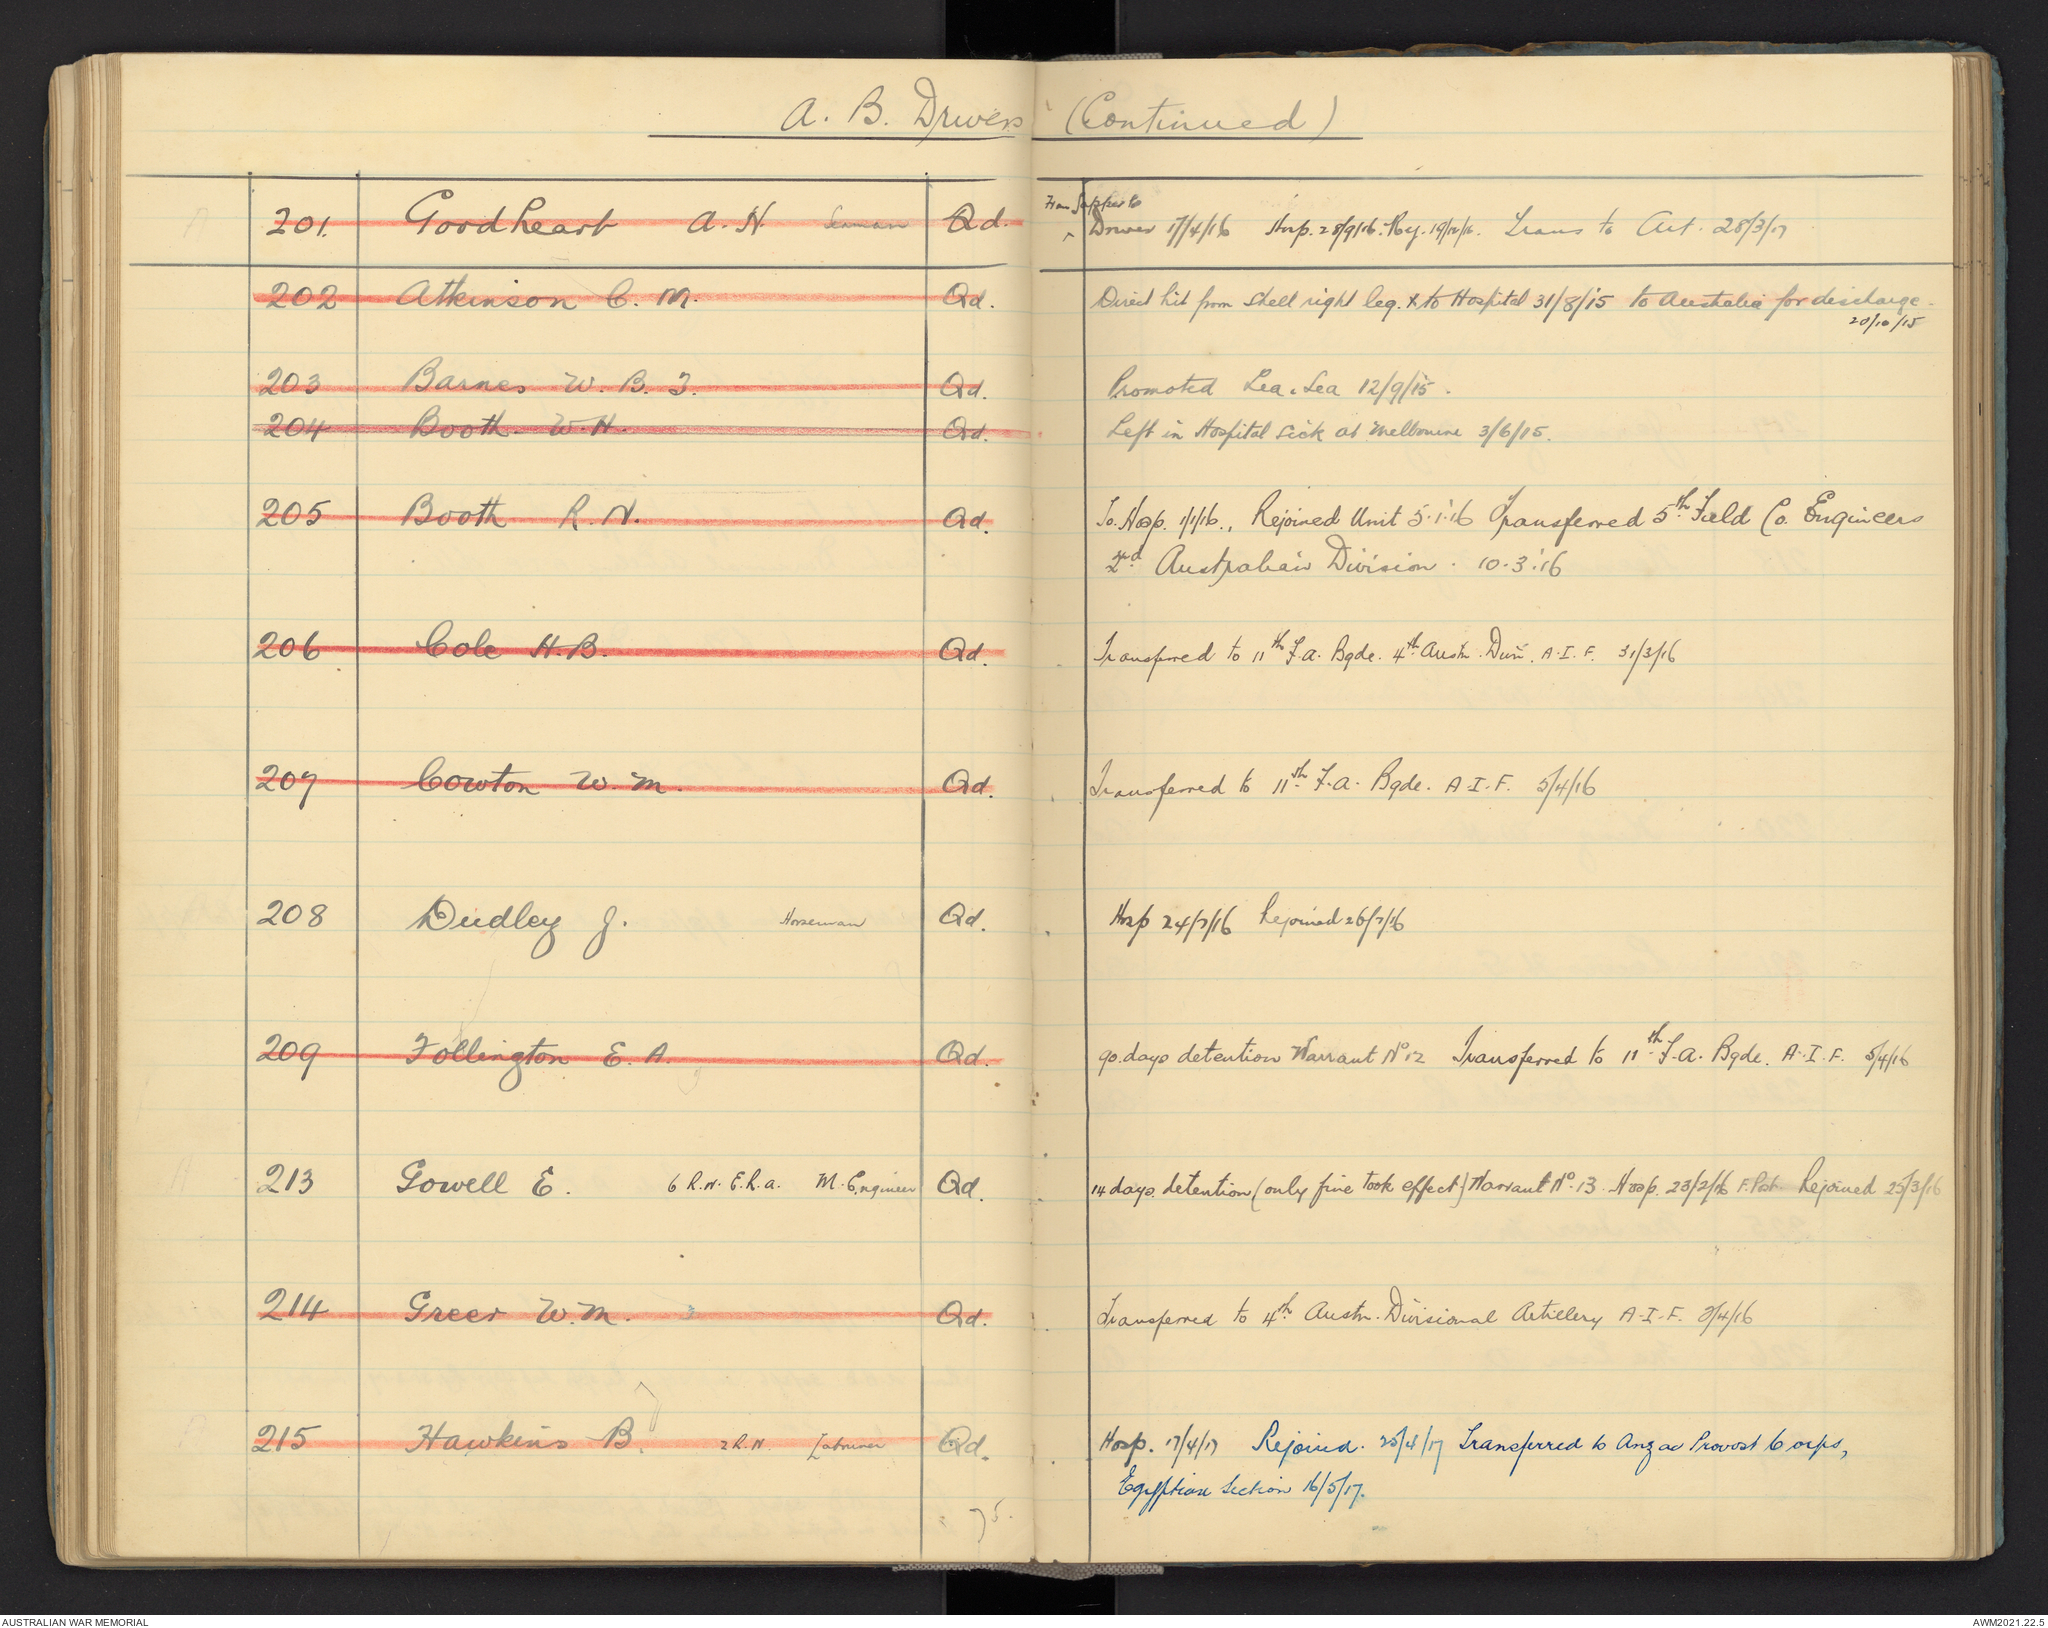 A. B. Drivers (Continued)
201. Goodheart A. H. Seaman Qd. From Sapper to
Driver 17/4/16 Hosp. 28/9/16. Rej. 19/12/16. Trans to Art. 28/3/17
202 Atkinson C. M. Qd. Direct hit from shell right leg. & to Hospital 31/8/15 to Australia for discharge -
20/10/15
203 Barnes W. B. T. Qd. Promoted Lea. Sea 12/9/15.
204 Booth W. H. Qd. Left in Hospital sick at Melbourne 3/6/15.
205 Booth R. N. Qd. To. Hosp. 1/1/16., Rejoined Unit 5.1.16 Transferred 5th Field Co. Engineers
2d Australian Division. 10.3.16
206 Cole H. B. Qd. Transferred to 11th F.A. Bgde. 4th Austn. Divn. A.I.F. 31/3/16
207 Cowton W. M. Qd. Transferred to 11th F.A. Bgde. A.I.F. 5/4/16
208 Dudley J. Horseman Qd. Hosp 24/7/16 Rejoined 26/7/16
209 Follington E. A. Qd. 90. days detention Warrant No 12 Transferred to 11th F.A. Bgde. A.I.F. 5/4/16
213 Gowell E. 6 R.N. E.R.A. M. Engineer Qd. 14 days. detention (only five took effect) Warrant No. 13. Hosp. 23/2/16 F. Post. Rejoined 25/3/16
214 Greer W. M. 3 Qd. Transferred to 4th Austn. Divisional Artillery A.I.F. 3/4/16
215 Hawkins B. 2 R.N. Labourer Qd. Hosp. 17/4/17 Rejoined. 25/4/17 Transferred to Anzac Provost Corps,
Egyptian Section 16/5/17.
75.
AUSTRALIAN WAR MEMORIAL AWM2021.22.5